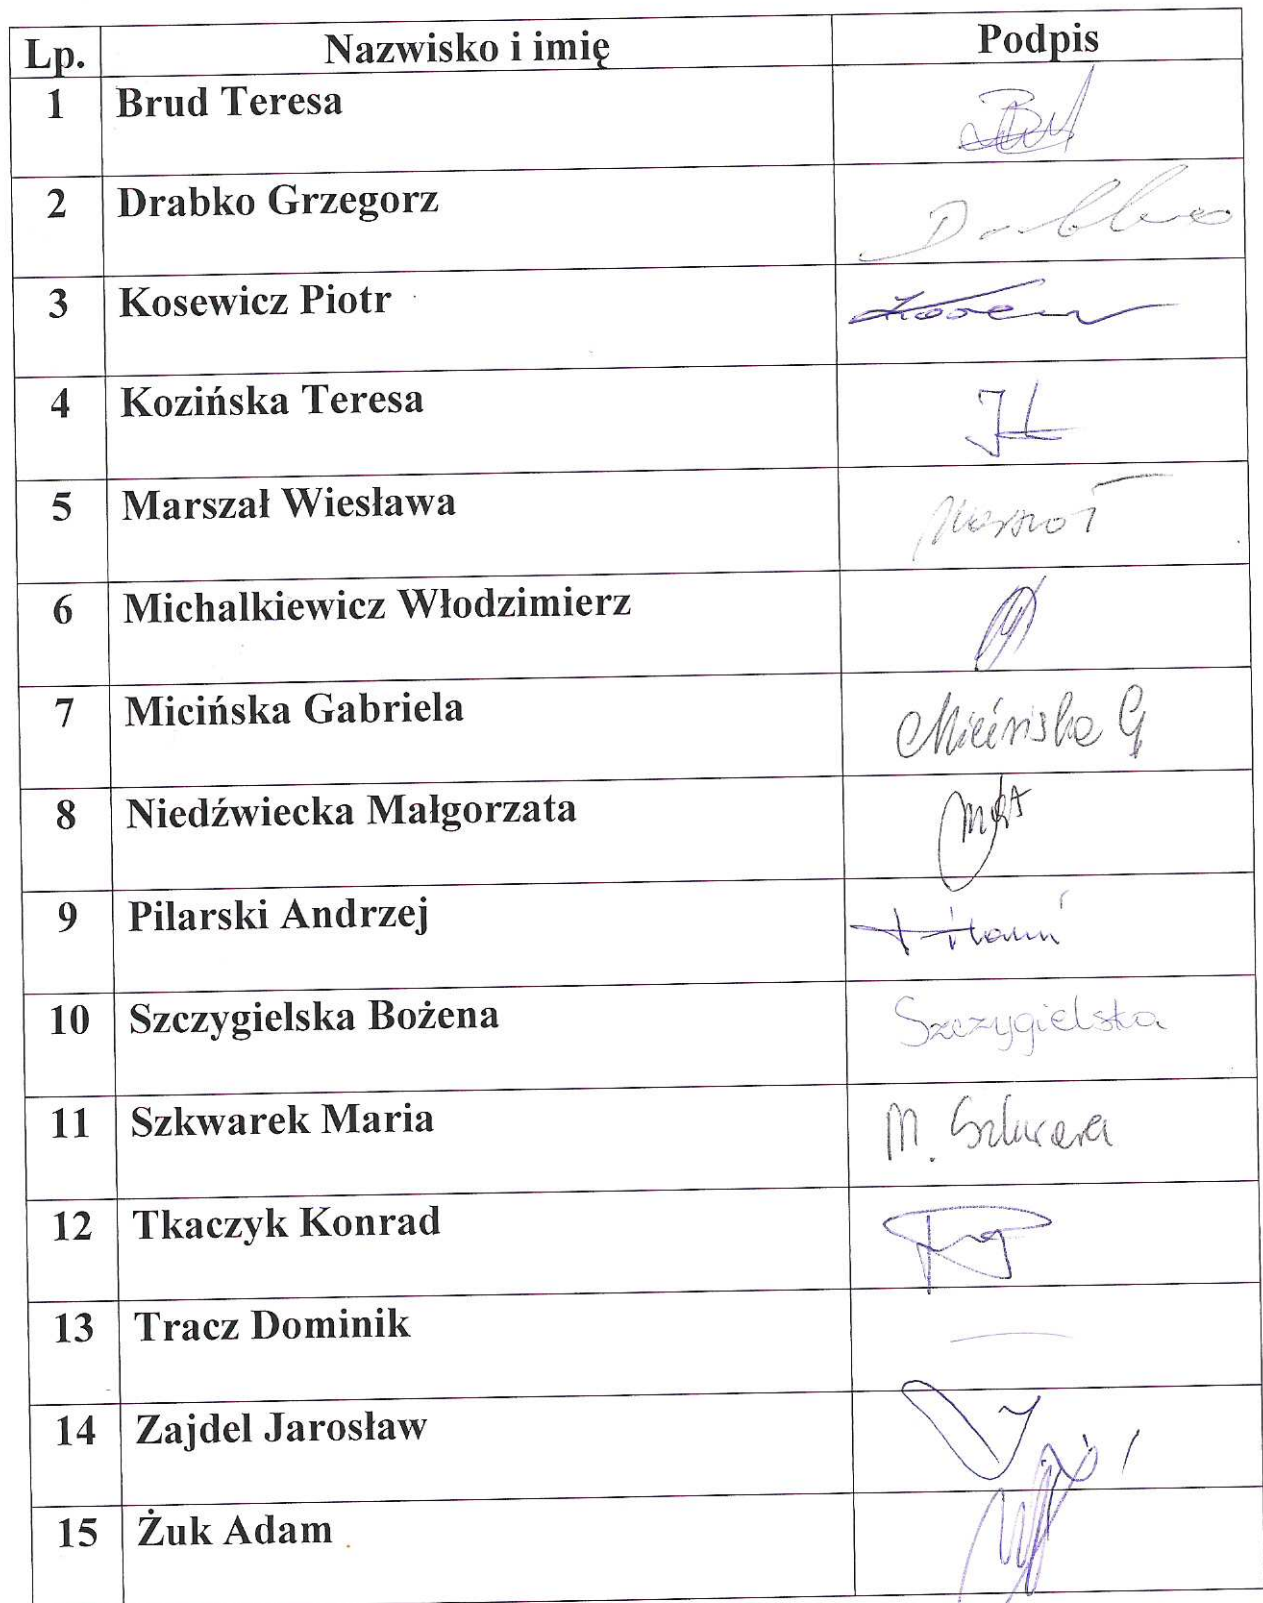 Lp. Nazwisko i imię Podpis
1 Brud Teresa
2 Drabko Grzegorz
3 Kosewicz Piotr
4 Kozińska Teresa
5 Marszał Wiesława
6 Michalkiewicz Włodzimierz
7 Micińska Gabriela Micińska G
8 Niedźwiecka Małgorzata
9 Pilarski Andrzej
10 Szczygielska Bożena Szczygielska
11 Szkwarek Maria M.
12 Tkaczyk Konrad
13 Tracz Dominik
14 Zajdel Jarosław
15 Żuk Adam